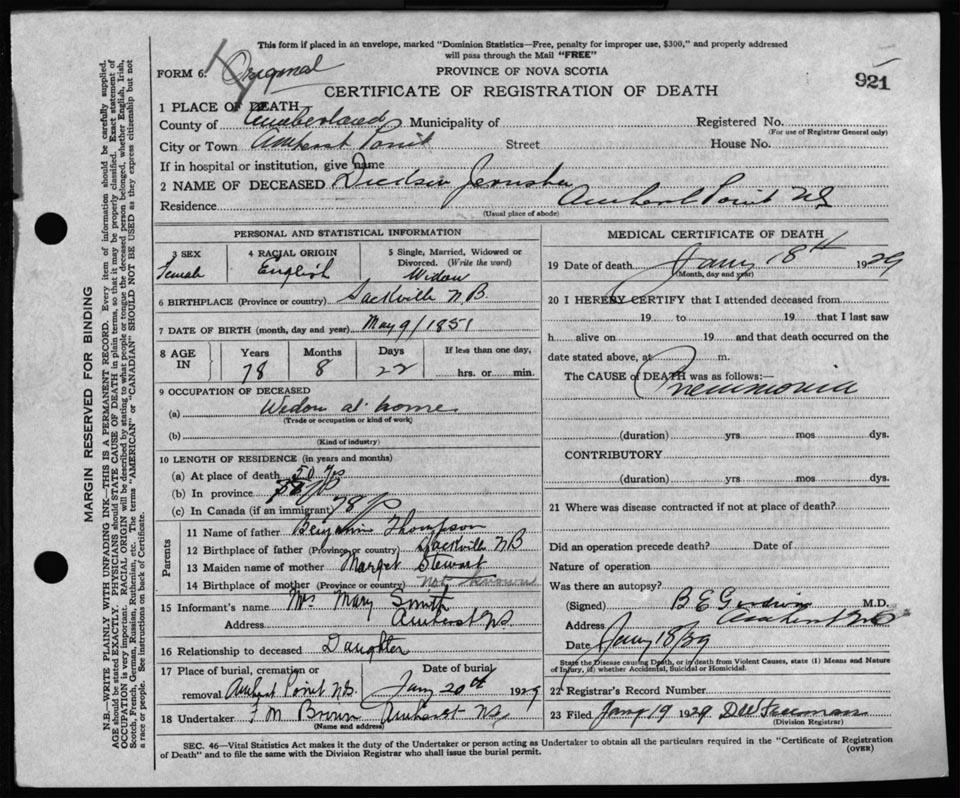 This form if placed in an envelope, marked "Dominion Statistics—Free, penalty for improper use, $300," and properly addressed
will pass through the Mail "FREE"
FORM 6. Original
PROVINCE OF NOVA SCOTIA
921
CERTIFICATE OF REGISTRATION OF DEATH
1 PLACE OF DEATH
County of Cumberland Municipality of Registered No.
(For use of Registrar General only)
City or Town Amherst Point Street House No.
If in hospital or institution, give name
2 NAME OF DECEASED Jerusha
Residence Amherst Point NS
(Usual place of abode)
PERSONAL AND STATISTICAL INFORMATION
3 SEX 4 RACIAL ORIGIN 5 Single, Married, Widowed or
Divorced. (Write the word)
Female English Widow
6 BIRTHPLACE (Province or country) Sackville N.B.
7 DATE OF BIRTH (month, day and year) May 9/1851
8 AGE IN Years Months Days If less than one day,
78 8 22 hrs. or min.
9 OCCUPATION OF DECEASED
(a) Widow at home
(Trade or occupation or kind of work)
(b)
(Kind of industry)
10 LENGTH OF RESIDENCE (in years and months)
(a) At place of death 50 yrs
(b) In province
(c) In Canada (if an immigrant) 78
Parents
11 Name of father Benjamin Thompson
12 Birthplace of father (Province or country) Sackville NB
13 Maiden name of mother Margret Stewart
14 Birthplace of mother (Province or country) not known
15 Informant's name Mrs Mary Smith
Address Amherst NS.
16 Relationship to deceased Daughter
17 Place of burial, cremation or Date of burial
removal Amherst Point N.S. Jany 20th 1929
18 Undertaker F M Brown Amherst NS
(Name and address)
MEDICAL CERTIFICATE OF DEATH
19 Date of death Jany 18th 1929
(Month, day and year)
20 I HEREBY CERTIFY that I attended deceased from
19 to 19 that I last saw
h alive on 19 and that death occurred on the
date stated above, at m.
The CAUSE OF DEATH was as follows:—
Pneumonia
(duration) yrs mos dys.
CONTRIBUTORY
(duration) yrs. mos dys.
21 Where was disease contracted if not at place of death?
Did an operation precede death? Date of
Nature of operation
Was there an autopsy?
(Signed) B E Goodwin M.D.
Address Amherst NS
Date Jany 18/29
State the Disease causing Death, or in death from Violent Causes, state (1) Means and Nature
of Injury, (2) whether Accidental, Suicidal or Homicidal.
22 Registrar's Record Number
23 Filed Jany 19 1929 Freeman
(Division Registrar)
SEC. 46—Vital Statistics Act makes it the duty of the Undertaker or person acting as Undertaker to obtain all the particulars required in the "Certificate of Registration
of Death" and to file the same with the Division Registrar who shall issue the burial permit.
(OVER)
MARGIN RESERVED FOR BINDING
N.B.—WRITE PLAINLY WITH UNFADING INK—THIS IS A PERMANENT RECORD. Every item of information should be carefully supplied.
AGE should be stated EXACTLY. PHYSICIANS should STATE CAUSE OF DEATH in plain terms, so that it may be properly classified. Exact statement of
OCCUPATION is very important. RACIAL ORIGIN will be described by stating to what people or tongue the deceased person belonged, whether English, Irish,
Scotch, French, German, Russian, Ruthenian, etc. The terms "AMERICAN" or "CANADIAN" SHOULD NOT BE USED as they express citizenship but not
a race or people. See instructions on back of Certificate.